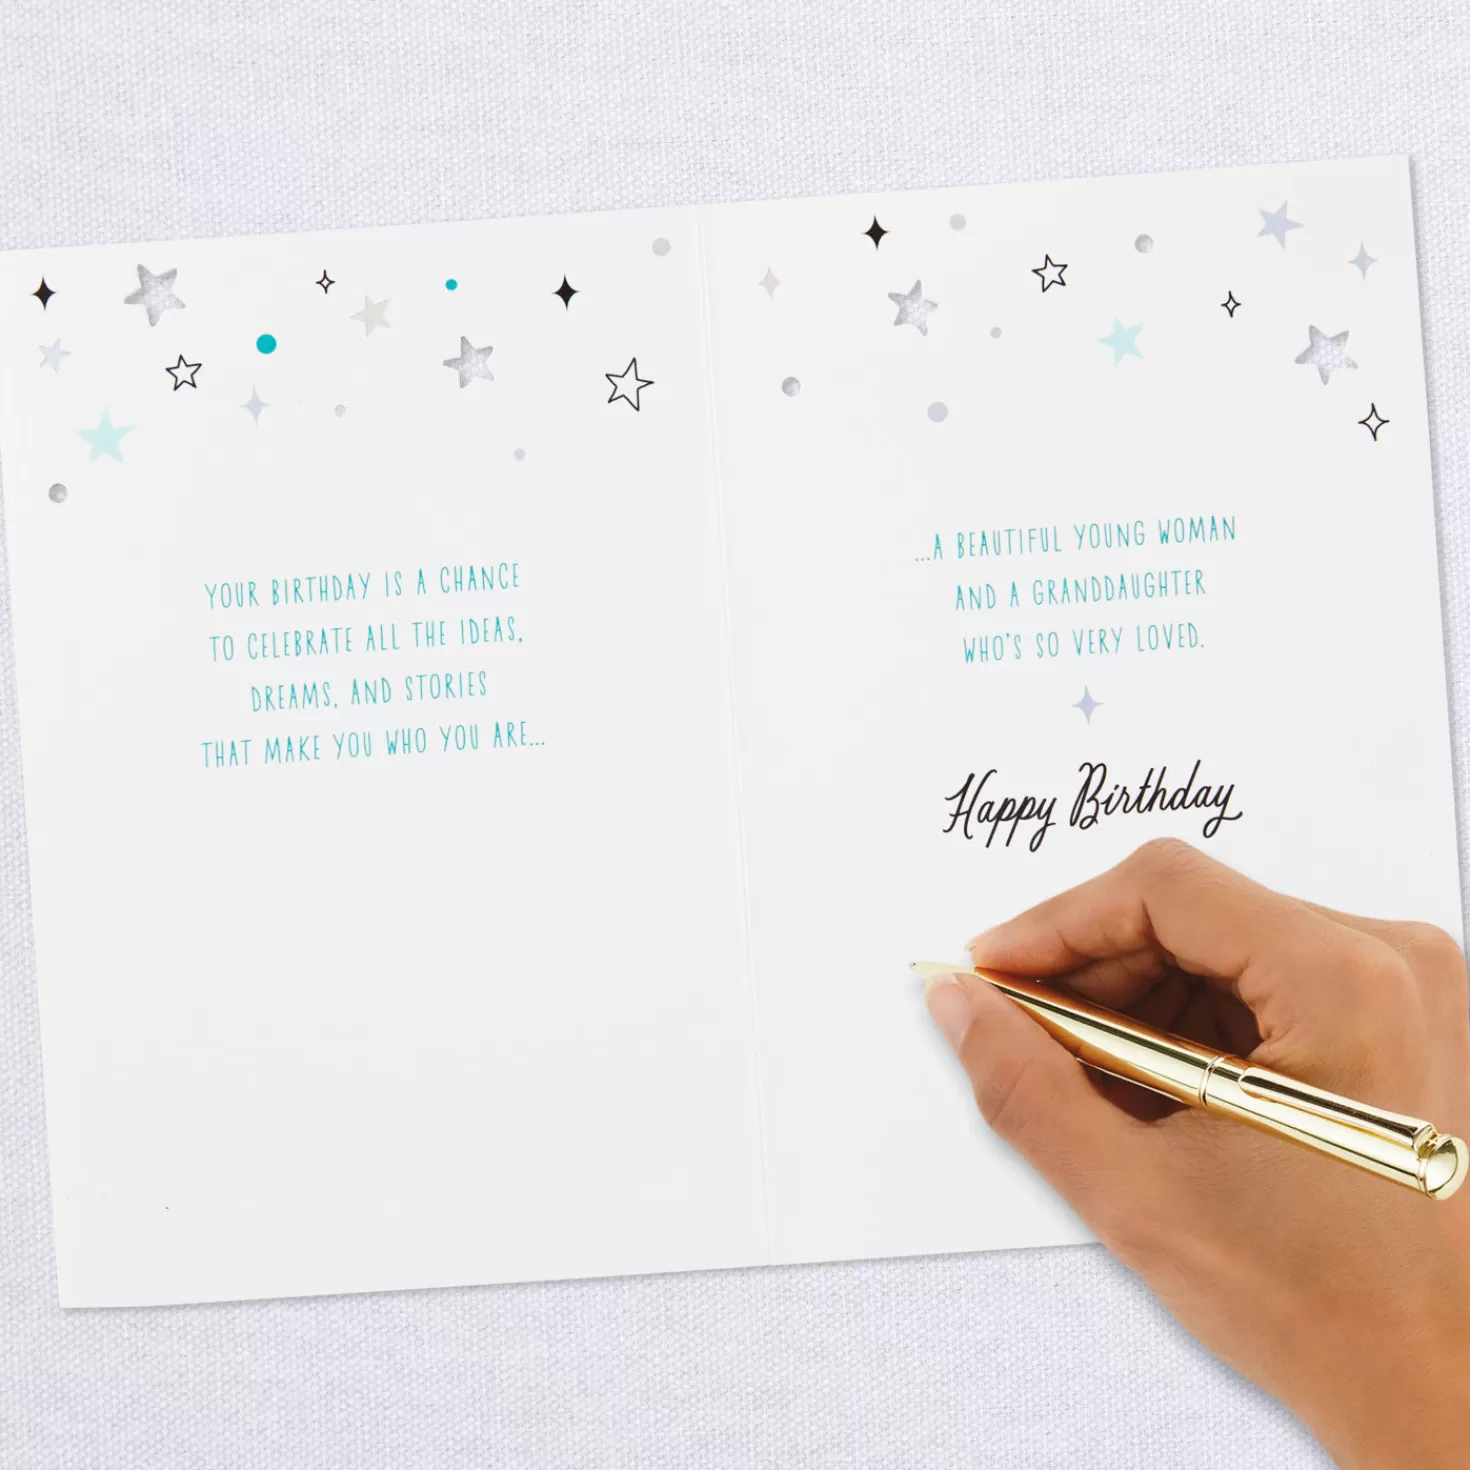 YOUR BIRTHDAY IS A CHANCE
TO CELEBRATE ALL THE IDEAS,
DREAMS, AND STORIES
THAT MAKE YOU WHO YOU ARE...
...A BEAUTIFUL YOUNG WOMAN
AND A GRANDDAUGHTER
WHO'S SO VERY LOVED.
Happy Birthday